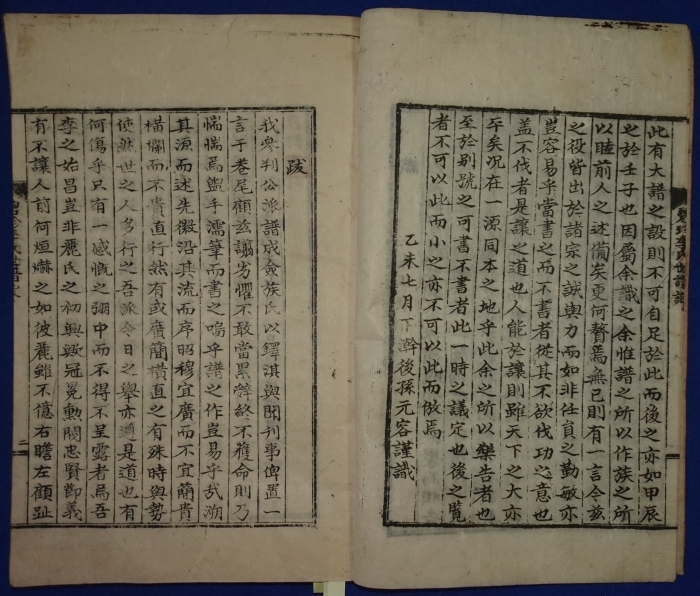 此有大譜之設則不可自足於此而後之亦如甲辰
之於壬子也因屬余識之余惟譜之所以作族之所
以睦前人之述備矣更何贅焉無已則有一言今茲
之役皆出於諸宗之誠與力而如非任員之勤敏亦
豈容易乎當書之而不書者從其不欲伐功之意也
盖不伐者是讓之道也人能於讓則雖天下之大亦
平矣况在一源同本之地乎此余之所以樂告者也
至於別號之可書不書者此一時之議定也後之覽
者不可以此而小之亦不可以此而倣焉
乙未七月下澣後孫元容謹識
跋
我參判公派譜成僉族氏以鐸淇與聞刊事俾置一
言于卷尾顧玆謭劣懼不敢當累辭終不獲命則乃
惴惴焉盥手濡筆而書之嗚乎譜之作豈易乎哉溯
其源而述先徽沿其流而序昭穆宜廣而不宜簡貴
橫欄而不貴直行然有或廣簡橫直之有殊時與勢
使然世之人多行之吾派今日之舉亦遵是道也有
何傷乎只有一感慨之弸中而不得不呈露者焉吾
李之始昌豈非麗氏之初興歟冠冕勳閥忠賢節義
有不讓人前何烜爀之如彼麗雖不億右瞻左顧趾
二